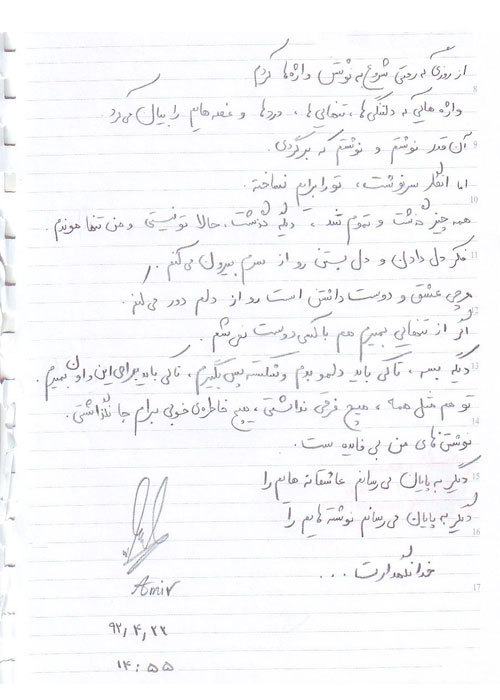 از روزی که رفتی شروع به نوشتن واژه‌ها کردم
واژه هایی که دلتنگی‌ها، تنهایی‌ها، دردها و غصه هایم را بیان می‌کرد
آن قدر نوشتم و نوشتم که برگردی.
اما انگار سرنوشت، تو را برایم نساخته.
همه چیز گذشت و تموم شد، دیگه گذشت، حالا تو نیستی و من تنها موندم.
فکر دل دادن و دل بستن رو از سرم بیرون می‌کنم.
هرچی عشق و دوست داشتن است رو از دلم دور می‌کنم.
اگر از تنهایی بمیرم هم با کسی دوست نمی‌شم.
دیگه بسه، تا کی باید دلمو بدم و شکسته پس بگیرم، تا کی باید برای این و اون بمیرم.
تو هم مثل همه، هیچ فرقی نداشتی، هیچ خاطره‌ی خوبی برام جا نگذاشتی.
نوشتن‌های من بی فایده ست.
دیگر به پایان می رسانم عاشقانه هایم را
دیگر به پایان می رسانم نوشته هایم را
خدانگهدارت ...
Amir
۹۲,۴,۲۲
۱۴:۵۵
8
9
10
11
12
13
14
15
16
17